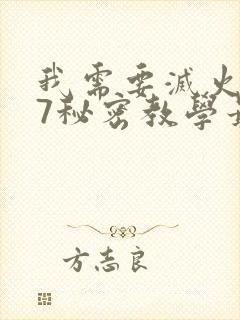 我需要滅火
7秘密教學
方志良